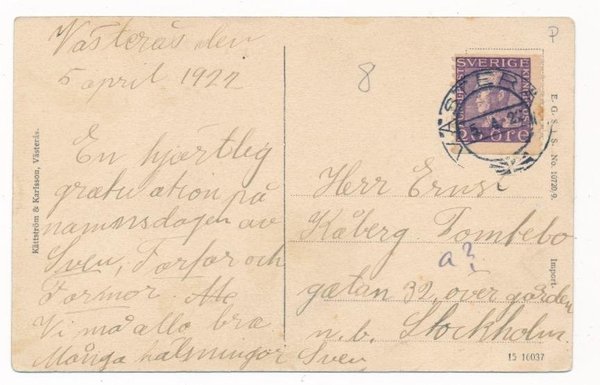 Västerås den
5 april 1922
En hjärtlig
gratuation på
namnsdagen av
Sven, Farfar och
Farmor
Vi må alla bra
Många hälsningar
Sven
Kättström & Karlsson, Västerås.
8
P
SVERIGE
ÖRE
VÄSTERÅS
E. G. S. i S. No. 10720/9.
Import.
Herr Ernst
Kåberg Tombebo
a?
gatan 32, över gården
n.b. Stockholm
15 10037